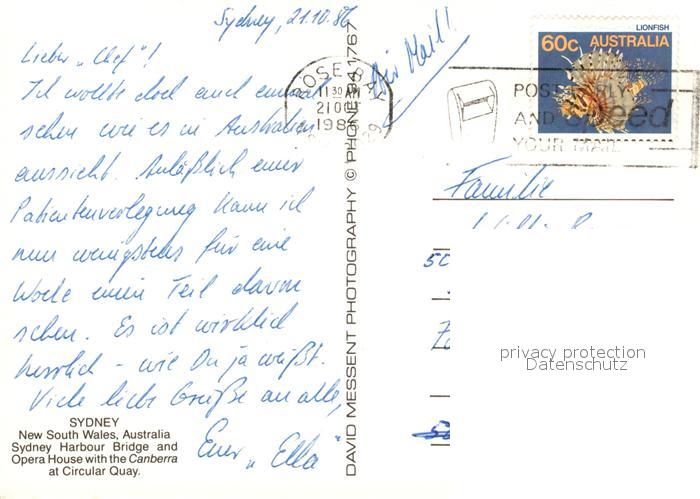 Sydney, 21.10.86
Lieber „Chef"!
Ich wollte doch auch einmal
sehen wie es in Australien
aussieht. Anläßlich einer
Patientenverlegung kann ich
nun wenigstens für eine
Woche einen Teil davon
sehen. Es ist wirklich
herrlich - wie Du ja weißt.
Viele liebe Grüße an alle,
Euer „Ella"
SYDNEY
New South Wales, Australia
Sydney Harbour Bridge and
Opera House with the Canberra
at Circular Quay.
DAVID MESSENT PHOTOGRAPHY © PHONE 94 1767
Air Mail!
ROSE BAY
11 30 AM
21 OC
198
29
LIONFISH
60c AUSTRALIA
POST EARLY
AND speed
YOUR MAIL
Familie
privacy protection
Datenschutz